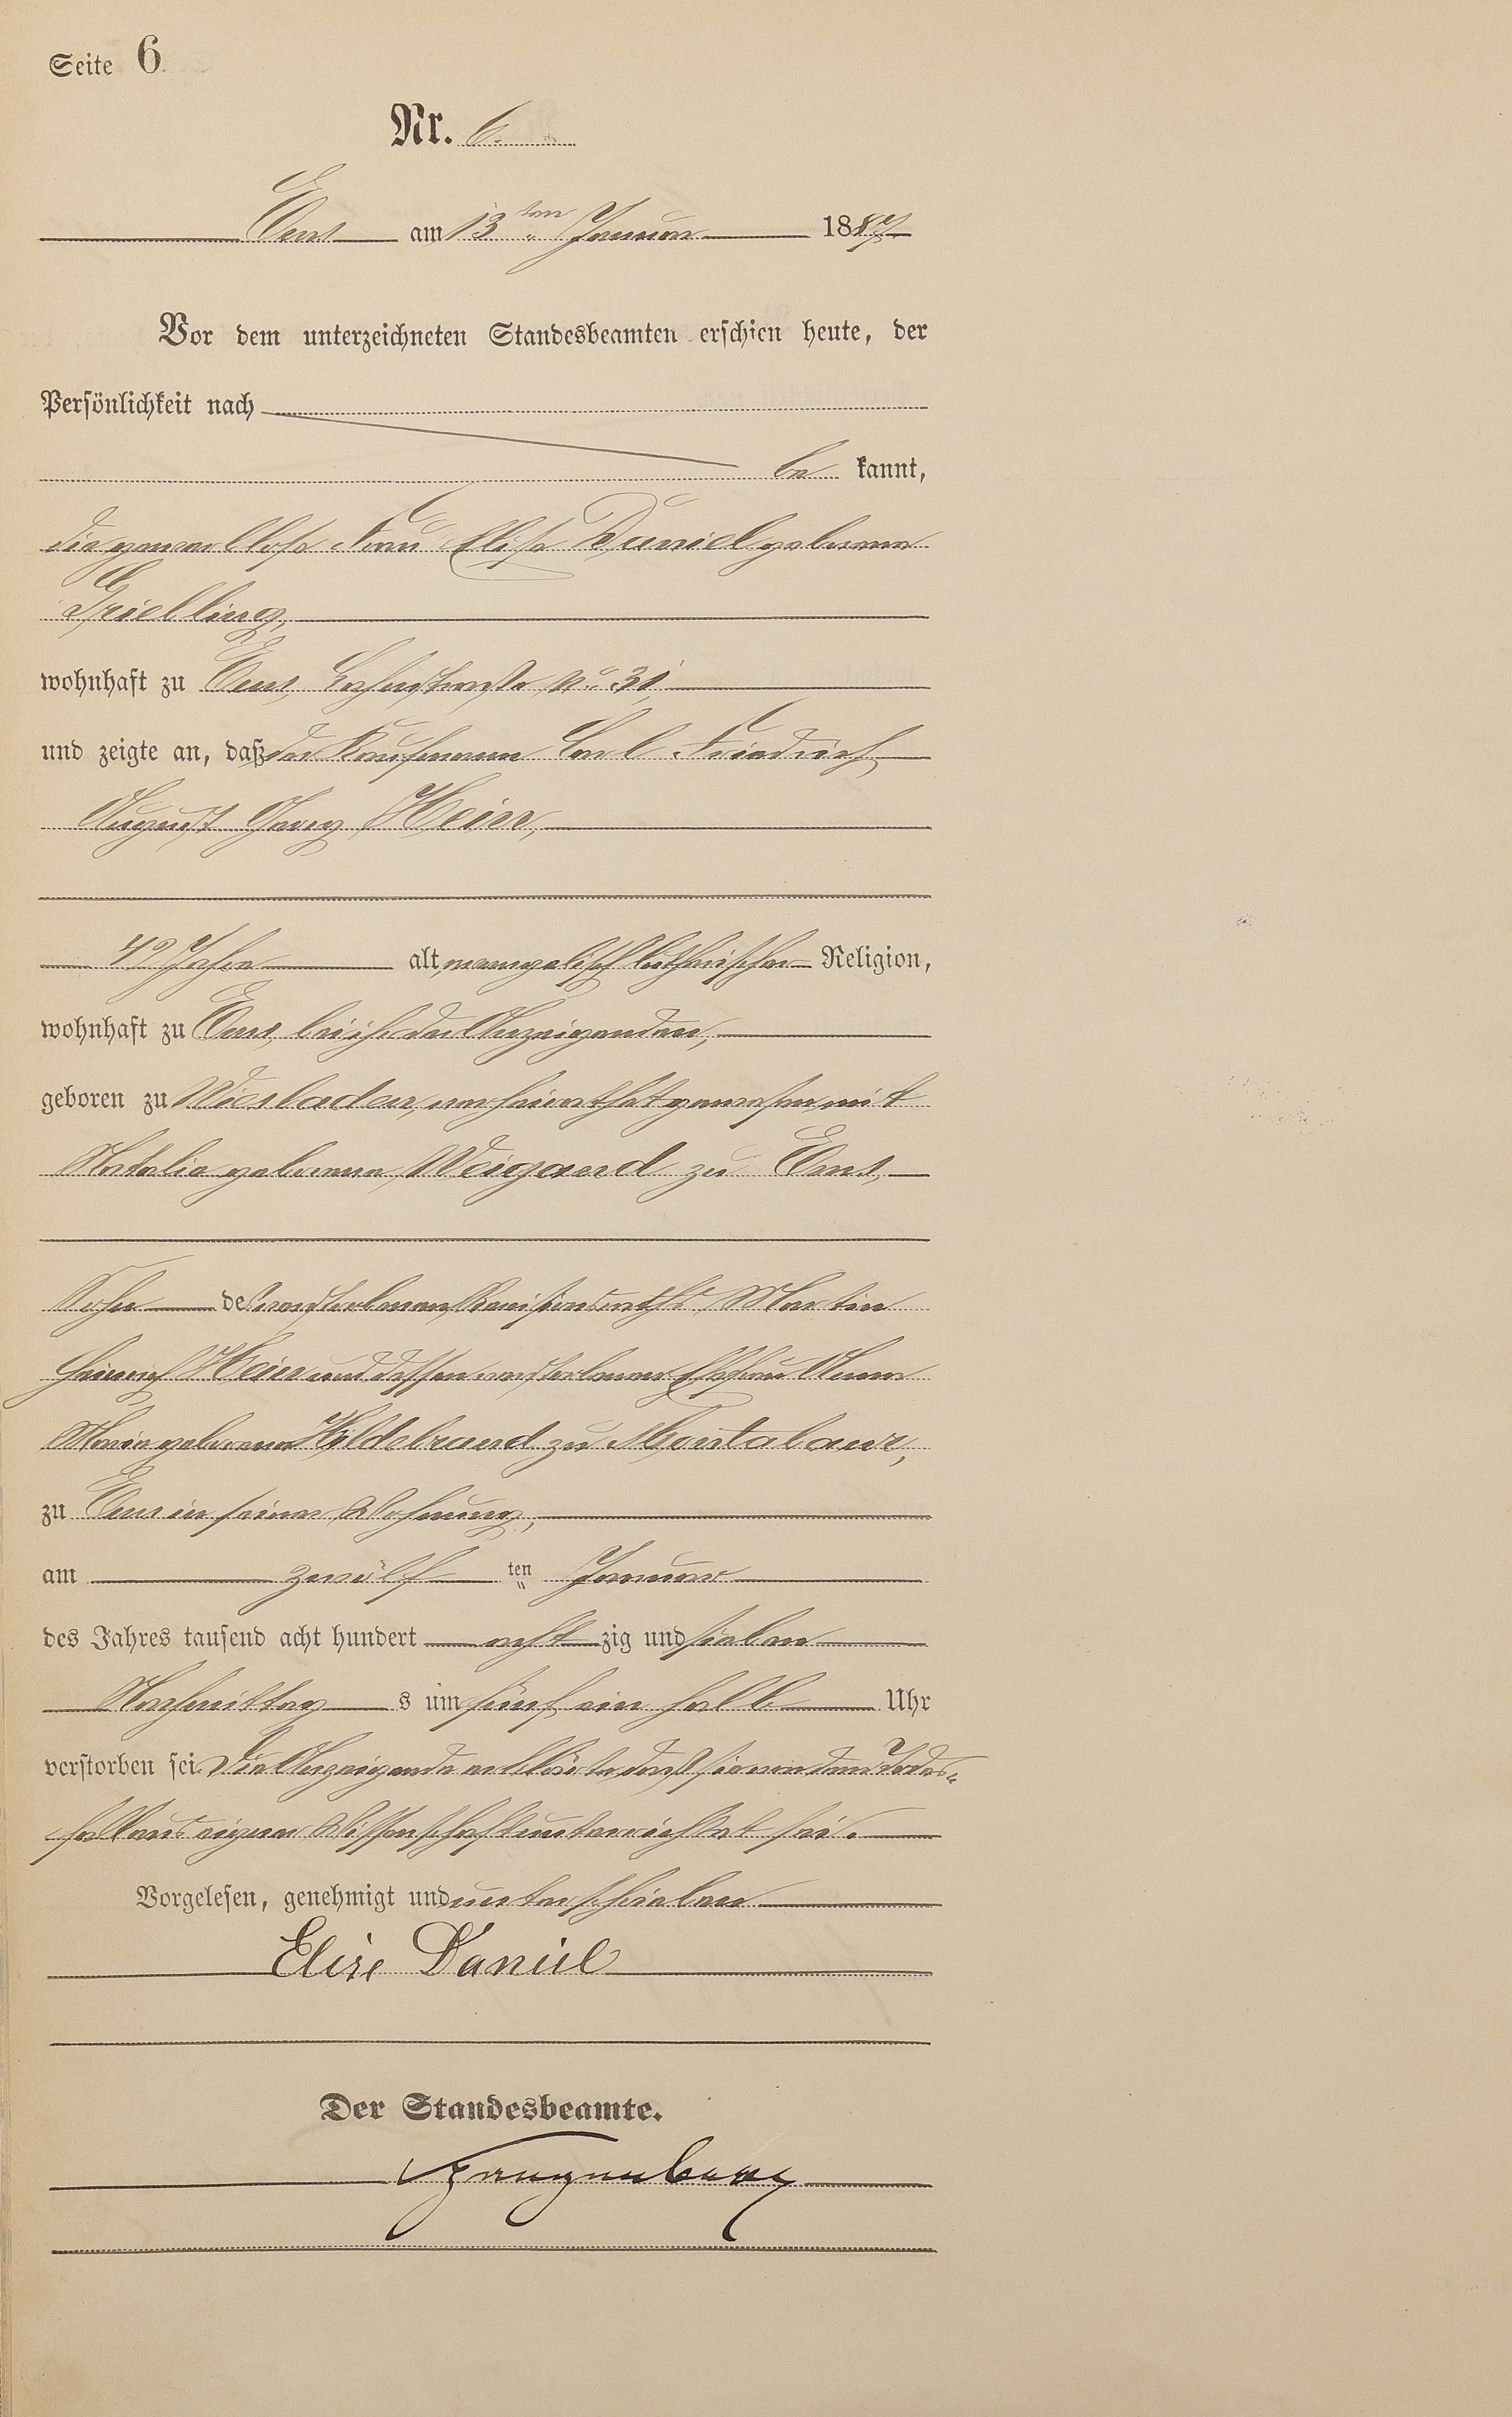 Seite 6
Nr. 6.
Ems am 13ten Januar 1887
Vor dem unterzeichneten Standesbeamten erschien heute, der
Persönlichkeit nach
bekannt,
die gewerblose Frau Elise Daniel geborene
Grielling,
wohnhaft zu Ems, Lahnstraße No 31,
und zeigte an, daß der Kaufmann Carl Friedrich
August Georg Hein,
49 Jahre alt, evangelisch lutherischer Religion,
wohnhaft zu Ems, bei ihr der Anzeigenden,
geboren zu Wiesbaden, verheirathet gewesen mit
Natalie geborene Weigand zu Ems,
Sohn des verstorbenen Revisionsraths Martin
Heinrich Hein und dessen verstorbener Ehefrau Anna
Maria geborene Hildebrand zu Montabaur,
zu Ems in seiner Wohnung,
am zwölften Januar
des Jahres tausend acht hundert achtzig und sieben
Nachmittags um fünf ein halb Uhr
verstorben sei. Die Anzeigende erklärte, daß sie von dem Todes-
fall aus eigener Wissenschaft unterrichtet sei.
Vorgelesen, genehmigt und unterschrieben
Elise Daniel
Der Standesbeamte.